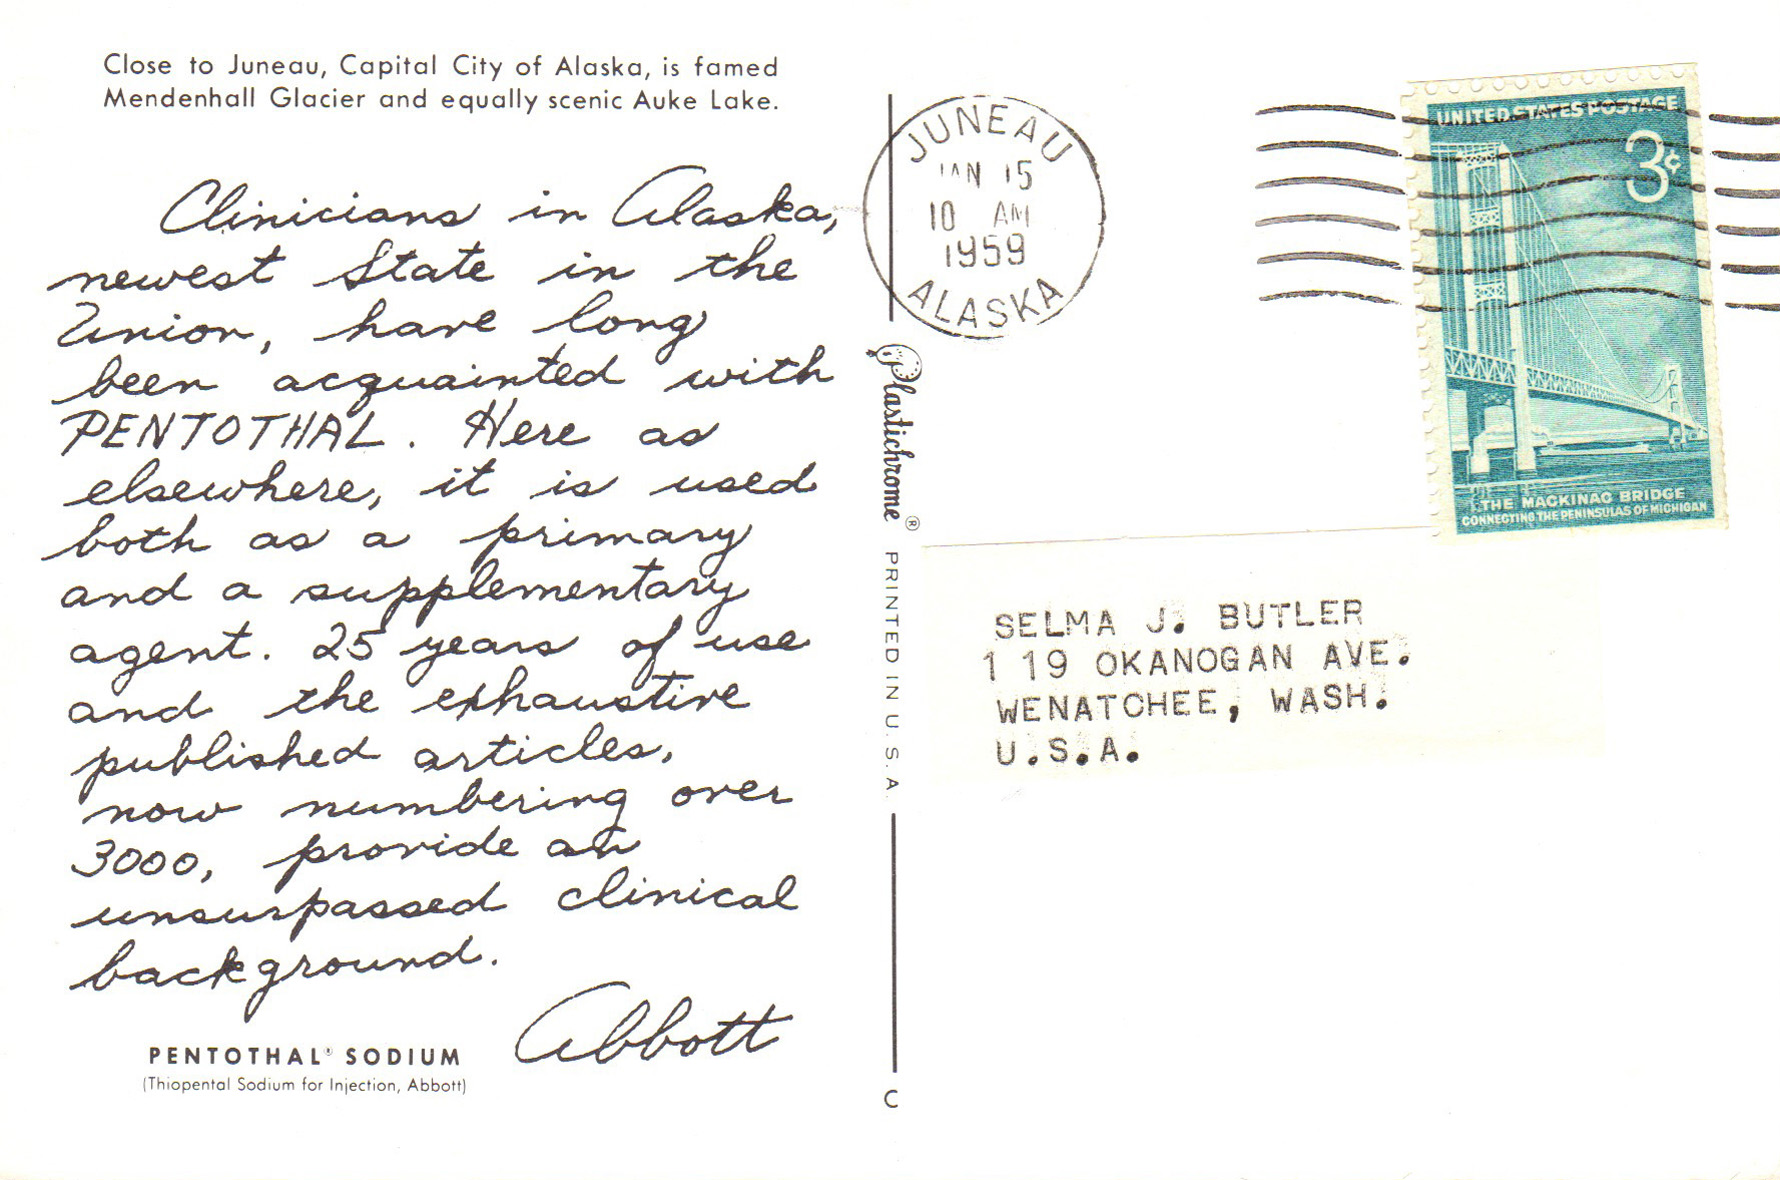 Close to Juneau, Capital City of Alaska, is famed
Mendenhall Glacier and equally scenic Auke Lake.
Clinicians in Alaska,
newest State in the
Union, have long
been acquainted with
PENTOTHAL. Here as
elsewhere, it is used
both as a primary
and a supplementary
agent. 25 years of use
and the exhaustive
published articles,
now numbering over
3000, provide an
unsurpassed clinical
background.
Abbott
PENTOTHAL® SODIUM
(Thiopental Sodium for Injection, Abbott)
Plastichrome ® PRINTED IN U. S. A.
C
JUNEAU
JAN 15
10 AM
1959
ALASKA
UNITED STATES POSTAGE
3¢
THE MACKINAC BRIDGE
CONNECTING THE PENINSULAS OF MICHIGAN
SELMA J. BUTLER
1 19 OKANOGAN AVE.
WENATCHEE, WASH.
U.S.A.